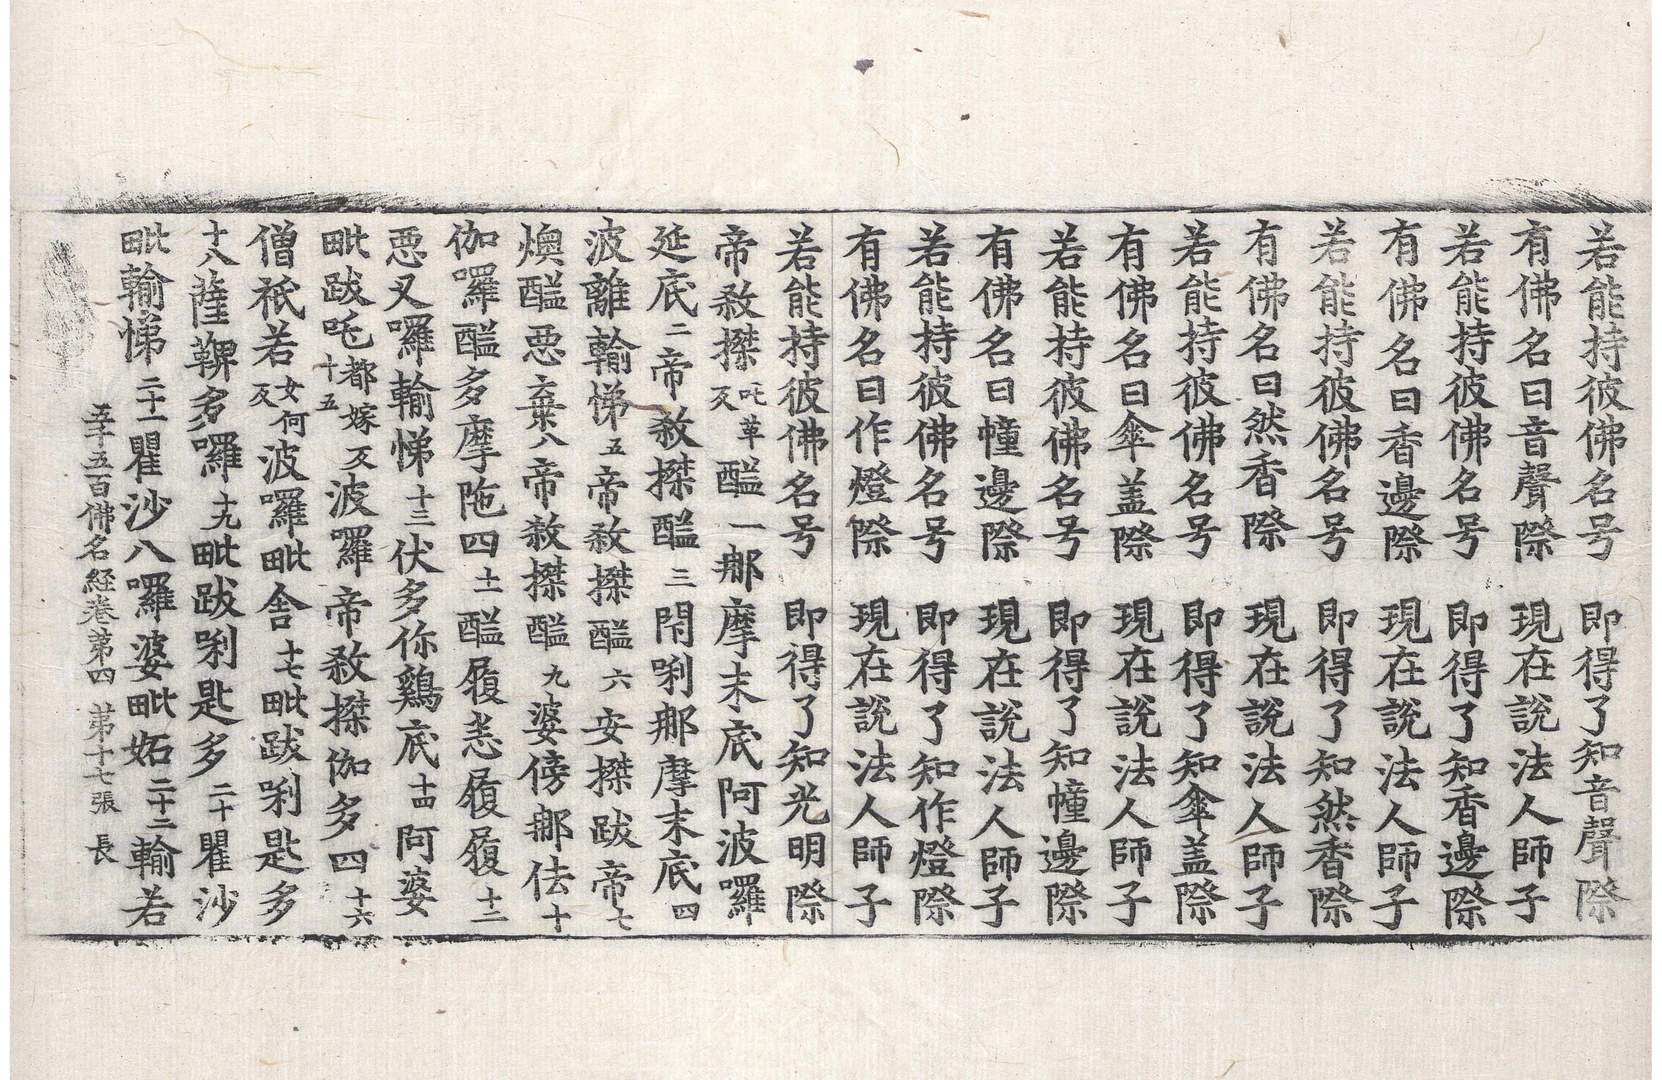 若能持彼佛名号　即得了知音聲際
有佛名曰音聲際　現在說法人師子
若能持彼佛名号　即得了知香邊際
有佛名曰香邊際　現在說法人師子
若能持彼佛名号　即得了知然香際
有佛名曰然香際　現在說法人師子
若能持彼佛名号　即得了知傘盖際
有佛名曰傘盖際　現在說法人師子
若能持彼佛名号　即得了知幢邊際
有佛名曰幢邊際　現在說法人師子
若能持彼佛名号　即得了知作燈際
有佛名曰作燈際　現在說法人師子
若能持彼佛名号　即得了知光明際
帝敊搩吒革反醯一那摩末底阿波囉
延底二帝敊搩醯三閇唎那摩末底四
波離輸悌五帝敊搩醯六安搩跋帝七
燠醯惡棄八帝敊搩醯九婆傍那佉十
伽囉醯多摩陁四十一醯履恙履履十二
惡叉囉輸悌十三伏多你鷄底十四阿婆
毗跋吒都嫁反十五波囉帝敊搩伽多四十六
僧祇若女何反波囉毗舍十七毗跋唎匙多
十八薩鞞多囉十九毗跋唎匙多二十瞿沙
毗輸悌二十一瞿沙八囉婆毗妬二十二輸若
五千五百佛名経卷第四　第十七張　長